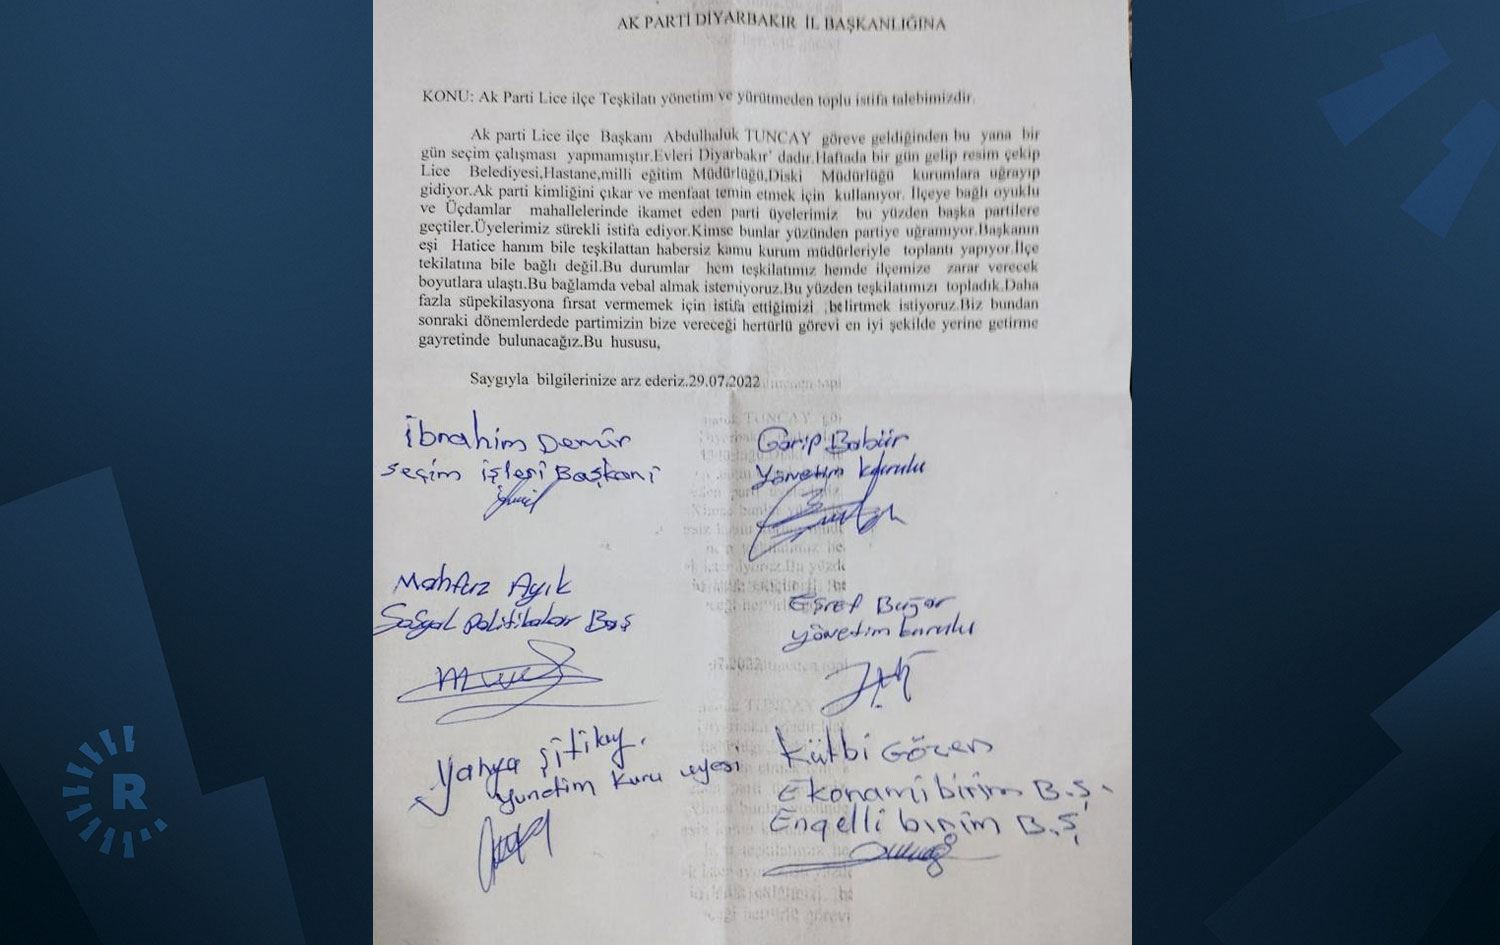 AK PARTİ DİYARBAKIR İL BAŞKANLIĞINA
KONU: Ak Parti Lice ilçe Teşkilatı yönetim ve yürütmeden toplu istifa talebimizdir.
Ak parti Lice ilçe Başkanı Abdulhaluk TUNCAY göreve geldiğinden bu yana bir
gün seçim çalışması yapmamıştır.Evleri Diyarbakır' dadır.Haftada bir gün gelip resim çekip
Lice Belediyesi,Hastane,milli eğitim Müdürlüğü,Diski Müdürlüğü kurumlara uğrayıp
gidiyor.Ak parti kimliğini çıkar ve menfaat temin etmek için kullanıyor. İlçeye bağlı oyuklu
ve Üçdamlar mahallelerinde ikamet eden parti üyelerimiz bu yüzden başka partilere
geçtiler.Üyelerimiz sürekli istifa ediyor.Kimse bunlar yüzünden partiye uğramıyor.Başkanın
eşi Hatice hanım bile teşkilattan habersiz kamu kurum müdürleriyle toplantı yapıyor.İlçe
tekilatına bile bağlı değil.Bu durumlar hem teşkilatımız hemde ilçemize zarar verecek
boyutlara ulaştı.Bu bağlamda vebal almak istemiyoruz.Bu yüzden teşkilatımızı topladık.Daha
fazla süpekilasyona fırsat vermemek için istifa ettiğimizi belirtmek istiyoruz.Biz bundan
sonraki dönemlerdede partimizin bize vereceği hertürlü görevi en iyi şekilde yerine getirme
gayretinde bulunacağız.Bu hususu,
Saygıyla bilgilerinize arz ederiz.29.07.2022
İbrahim Demir
Seçim işleri Başkanı
Garip Babür
Yönetim kurulu
Mahfuz Ayık
Sosyal Politikalar Baş
Eşref Buğar
yönetim kurulu
Yahya
Yunetim Kuru uyesi
Kütbi Gözen
Ekonami birim B.Ş.
Engelli birim B.Ş
R